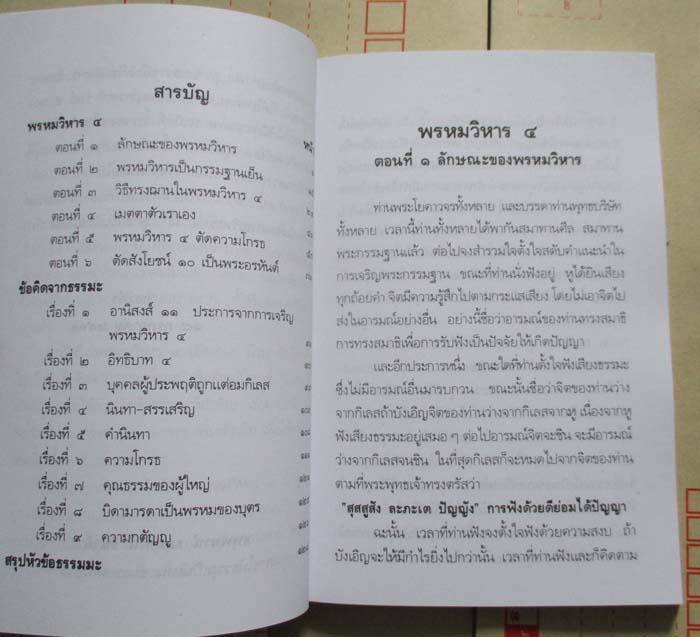 สารบัญ
พรหมวิหาร ๔
ตอนที่ ๑ ลักษณะของพรหมวิหาร
ตอนที่ ๒ พรหมวิหารเป็นกรรมฐานเย็น
ตอนที่ ๓ วิธีทรงฌานในพรหมวิหาร ๔
ตอนที่ ๔ เมตตาตัวเราเอง
ตอนที่ ๕ พรหมวิหาร ๔ ตัดความโกรธ
ตอนที่ ๖ ตัดสังโยชน์ ๑๐ เป็นพระอรหันต์
ข้อคิดจากธรรมะ
เรื่องที่ ๑ อานิสงส์ ๑๑ ประการจากการเจริญ
พรหมวิหาร ๔
เรื่องที่ ๒ อิทธิบาท ๔
เรื่องที่ ๓ บุคคลผู้ประพฤติถูกแต่อมกิเลส
เรื่องที่ ๔ นินทา-สรรเสริญ
เรื่องที่ ๕ คำนินทา
เรื่องที่ ๖ ความโกรธ
เรื่องที่ ๗ คุณธรรมของผู้ใหญ่
เรื่องที่ ๘ บิดามารดาเป็นพรหมของบุตร
เรื่องที่ ๙ ความกตัญญู
สรุปหัวข้อธรรมมะ
พรหมวิหาร ๔
ตอนที่ ๑ ลักษณะของพรหมวิหาร
ท่านพระโยคาวจรทั้งหลาย และบรรดาท่านพุทธบริษัท
ทั้งหลาย เวลานี้ท่านทั้งหลายได้พากันสมาทานศีล สมาทาน
พระกรรมฐานแล้ว ต่อไปจงสำรวมใจตั้งใจสดับคำแนะนำใน
การเจริญพระกรรมฐาน ขณะที่ท่านนั่งฟังอยู่ หูได้ยินเสียง
ทุกถ้อยคำ จิตมีความรู้สึกไปตามกระแสเสียง โดยไม่เอาจิตไป
ส่งในอารมณ์อย่างอื่น อย่างนี้ชื่อว่าอารมณ์ของท่านทรงสมาธิ
การทรงสมาธิเพื่อการรับฟังเป็นปัจจัยให้เกิดปัญญา
และอีกประการหนึ่ง ขณะใดที่ท่านตั้งใจฟังเสียงธรรมะ
ซึ่งไม่มีอารมณ์อื่นมารบกวน ขณะนั้นชื่อว่าจิตของท่านว่าง
จากกิเลสถ้าบังเอิญจิตของท่านว่างจากกิเลสจากหู เนื่องจากหู
ฟังเสียงธรรมะอยู่เสมอ ๆ ต่อไปอารมณ์จิตจะชิน จะมีอารมณ์
ว่างจากกิเลสจนชิน ในที่สุดกิเลสก็จะหมดไปจากจิตของท่าน
ตามที่พระพุทธเจ้าทรงตรัสว่า
"สุสสูสัง ละภะเต ปัญญัง" การฟังด้วยดีย่อมได้ปัญญา
ฉะนั้น เวลาที่ท่านฟังจงตั้งใจฟังด้วยความสงบ ถ้า
บังเอิญจะให้มีกำไรยิ่งไปกว่านั้น เวลาที่ท่านฟังและก็คิดตาม